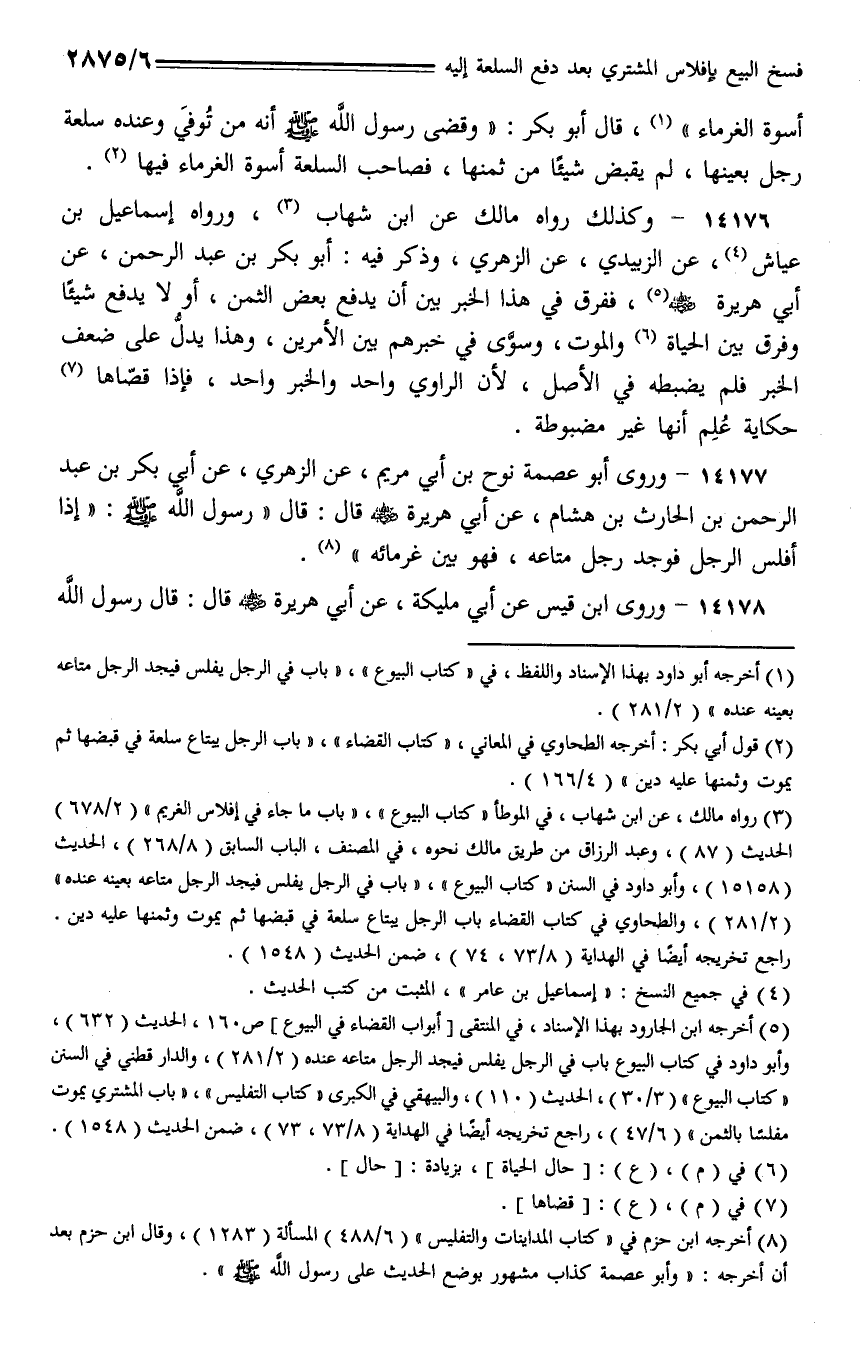 فسخ البيع بإفلاس المشتري بعد دفع السلعة إليه ٢٨٧٥/٦
أسوة الغرماء » (١) ، قال أبو بكر : « وقضى رسول الله ﷺ أنه من تُوفيَ وعنده سلعة
رجل بعينها ، لم يقبض شيئًا من ثمنها ، فصاحب السلعة أسوة الغرماء فيها (٢) .
١٤١٧٦ - وكذلك رواه مالك عن ابن شهاب (٣) ، ورواه إسماعيل بن
عياش (٤) ، عن الزبيدي ، عن الزهري ، وذكر فيه : أبو بكر بن عبد الرحمن ، عن
أبي هريرة ﷺ (٥) ، ففرق في هذا الخبر بين أن يدفع بعض الثمن ، أو لا يدفع شيئًا
وفرق بين الحياة (٦) والموت ، وسوَّى في خبرهم بين الأمرين ، وهذا يدلُّ على ضعف
الخبر فلم يضبطه في الأصل ، لأن الراوي واحد والخبر واحد ، فإذا قصّاها (٧)
حكاية عُلِم أنها غير مضبوطة .
١٤١٧٧ - وروى أبو عصمة نوح بن أبي مريم ، عن الزهري ، عن أبي بكر بن عبد
الرحمن بن الحارث بن هشام ، عن أبي هريرة ﷺ قال : قال « رسول الله ﷺ : « إذا
أفلس الرجل فوجد رجل متاعه ، فهو بين غرمائه » (٨) .
١٤١٧٨ - وروى ابن قيس عن أبي مليكة ، عن أبي هريرة ﷺ قال : قال رسول الله
(١) أخرجه أبو داود بهذا الإسناد واللفظ ، في « كتاب البيوع » ، « باب في الرجل يفلس فيجد الرجل متاعه
بعينه عنده » ( ٢٨١/٢ ) .
(٢) قول أبي بكر : أخرجه الطحاوي في المعاني ، « كتاب القضاء » ، « باب الرجل يبتاع سلعة في قبضها ثم
يموت وثمنها عليه دين » ( ١٦٦/٤ ) .
(٣) رواه مالك ، عن ابن شهاب ، في الموطأ « كتاب البيوع » ، « باب ما جاء في إفلاس الغريم » ( ٦٧٨/٢ )
الحديث ( ٨٧ ) ، وعبد الرزاق من طريق مالك نحوه ، في المصنف ، الباب السابق ( ٢٦٨/٨ ) ، الحديث
( ١٥١٥٨ ) ، وأبو داود في السنن « كتاب البيوع » ، « باب في الرجل يفلس فيجد الرجل متاعه بعينه عنده »
( ٢٨١/٢ ) ، والطحاوي في كتاب القضاء باب الرجل يبتاع سلعة في قبضها ثم يموت وثمنها عليه دين .
راجع تخريجه أيضًا في الهداية ( ٧٣/٨ ، ٧٤ ) ، ضمن الحديث ( ١٥٤٨ ) .
(٤) في جميع النسخ : « إسماعيل بن عامر » ، المثبت من كتب الحديث .
(٥) أخرجه ابن الجارود بهذا الإسناد ، في المنتقى [ أبواب القضاء في البيوع ] ص١٦٠ ، الحديث ( ٦٣٢ ) ،
وأبو داود في كتاب البيوع باب في الرجل يفلس فيجد الرجل متاعه عنده ( ٢٨١/٢ ) ، والدار قطني في السنن
« كتاب البيوع » ( ٣٠/٣ ) ، الحديث ( ١١٠ ) ، والبيهقي في الكبرى « كتاب التفليس » ، « باب المشتري يموت
مفلسًا بالثمن » ( ٤٧/٦ ) ، راجع تخريجه أيضًا في الهداية ( ٧٣/٨ ، ٧٣ ) ، ضمن الحديث ( ١٥٤٨ ) .
(٦) في ( م ) ، ( ع ) : [ حال الحياة ] ، بزيادة : [ حال ] .
(٧) في ( م ) ، ( ع ) : [ قضاها ] .
(٨) أخرجه ابن حزم في « كتاب المداينات والتفليس » ( ٤٨٨/٦ ) المسألة ( ١٢٨٣ ) ، وقال ابن حزم بعد
أن أخرجه : « وأبو عصمة كذاب مشهور بوضع الحديث على رسول الله ﷺ » .